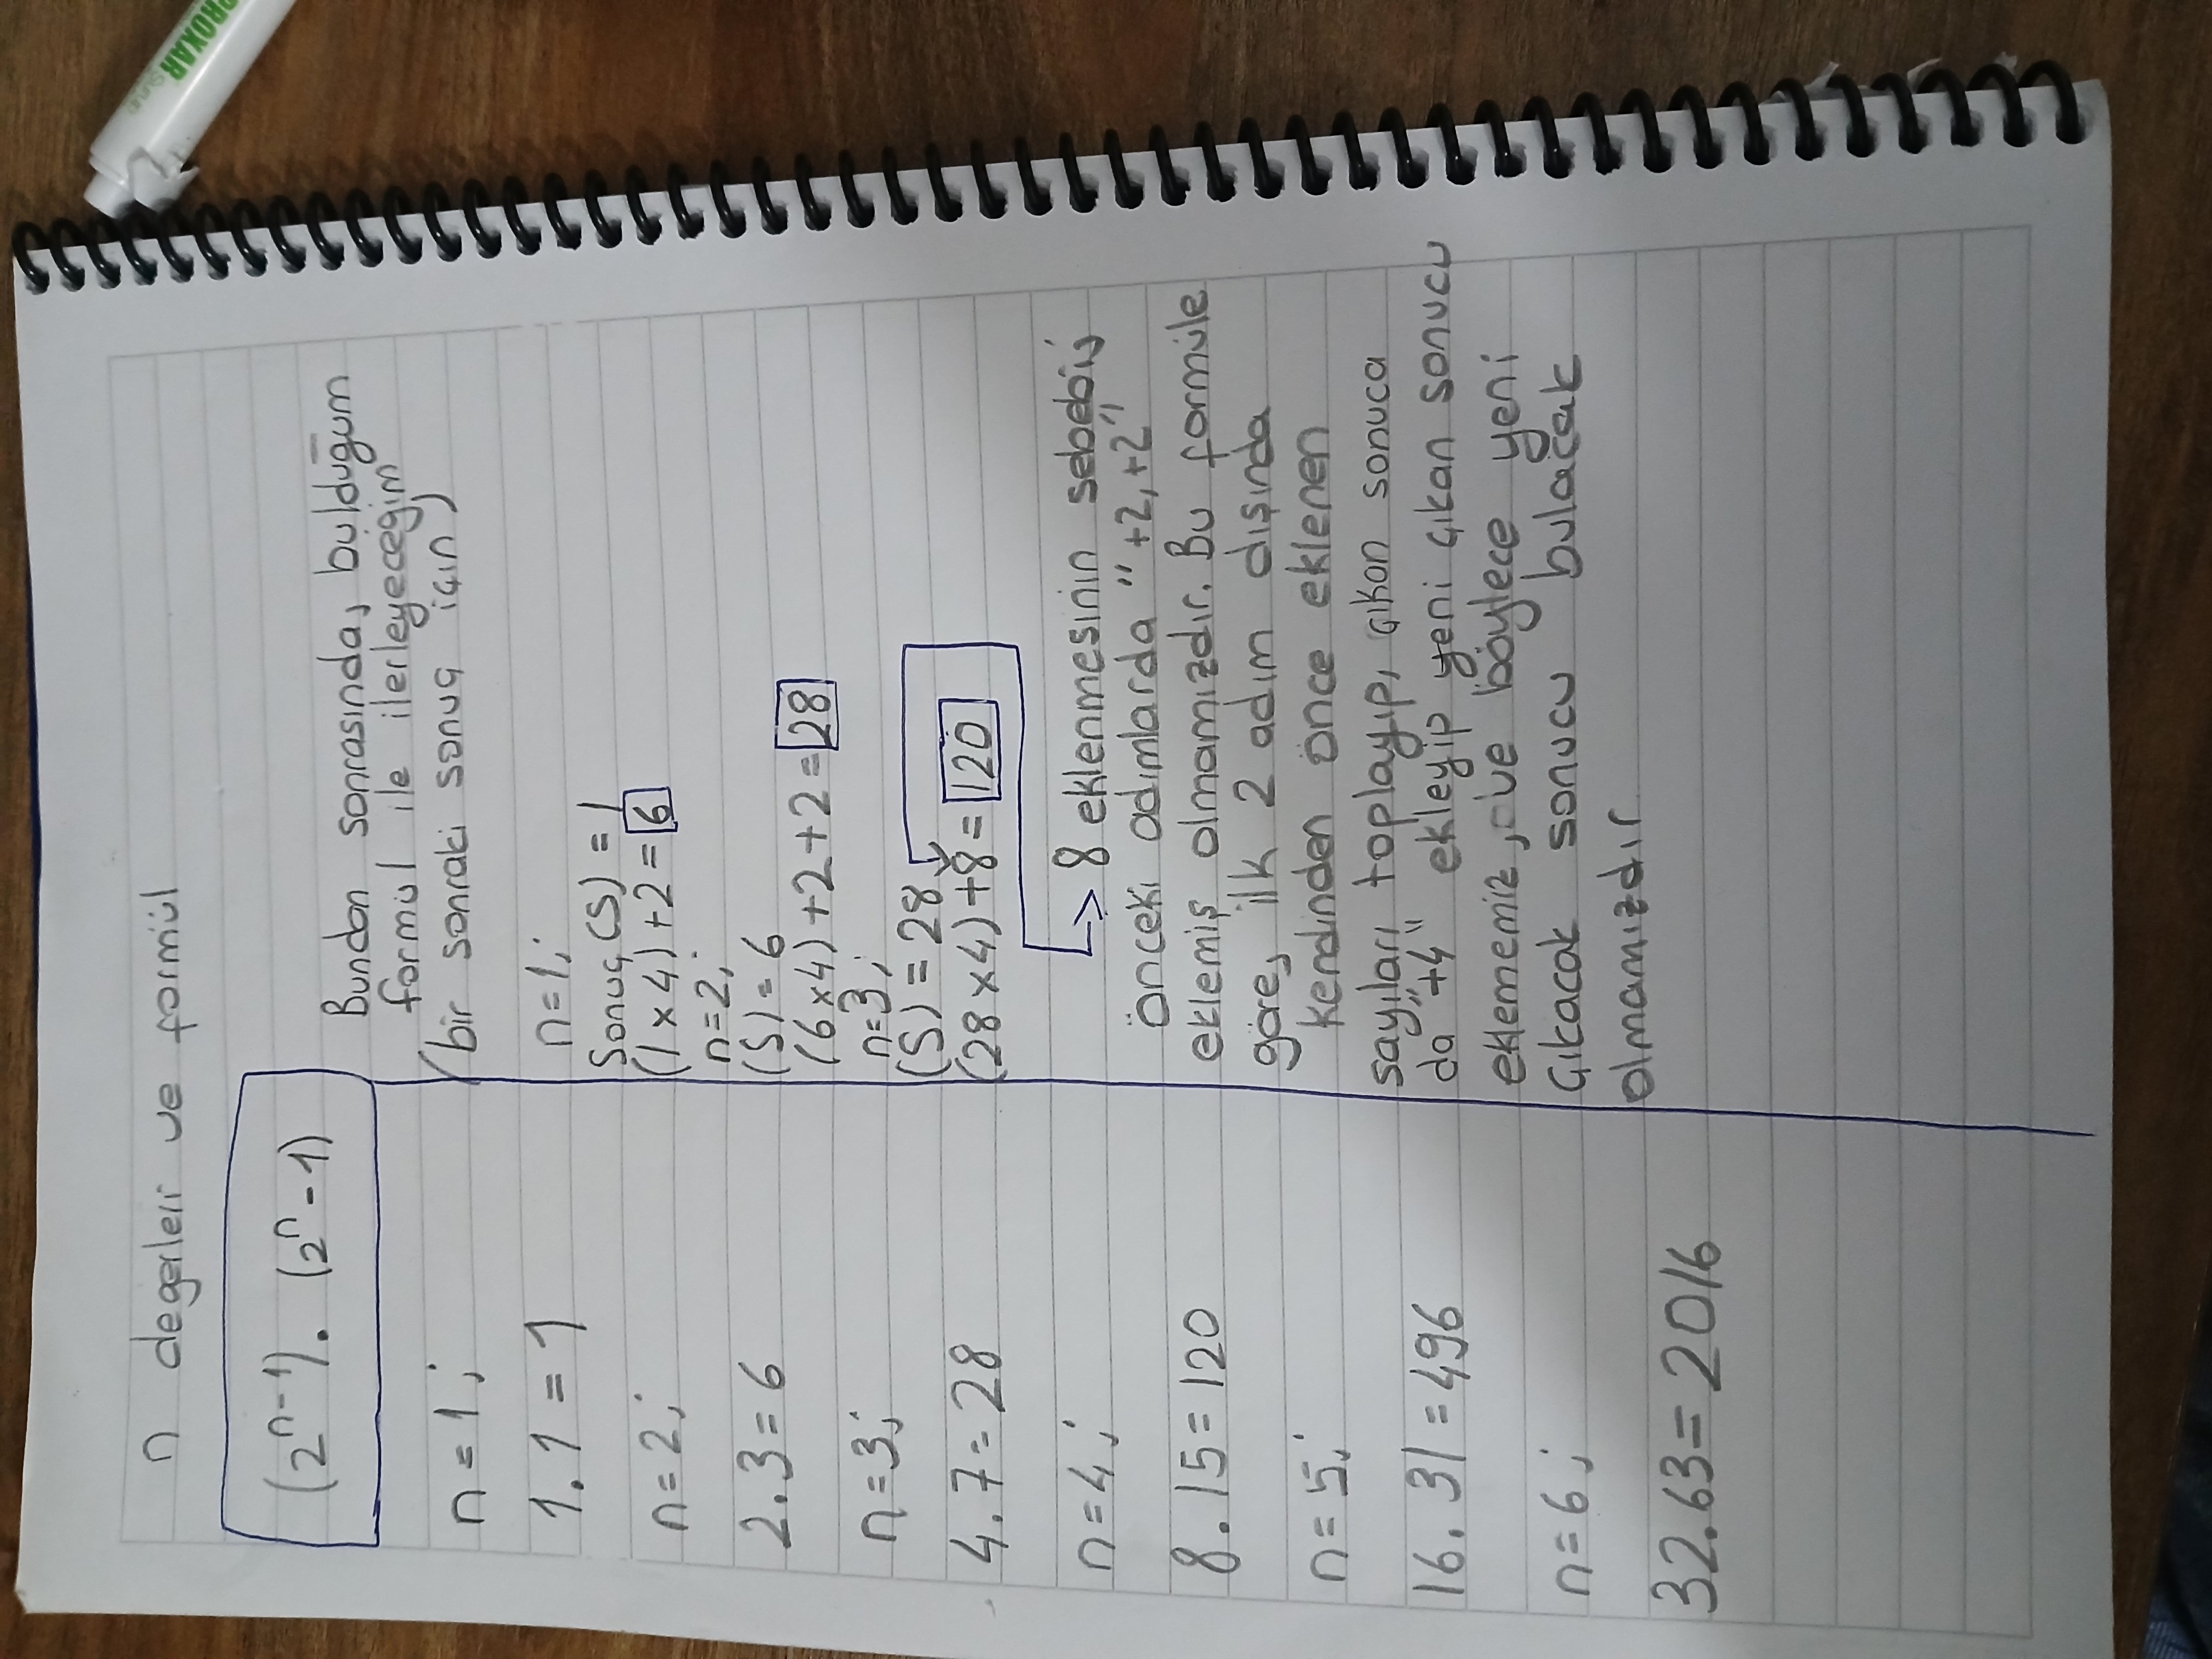 PROXAR
n değerleri ve formül
(2ⁿ⁻¹). (2ⁿ-1)
n=1;
1.1=1
n=2;
2.3=6
n=3;
4.7=28
n=4;
8.15=120
n=5;
16.31=496
n=6;
32.63=2016
Bundan sonrasında, bulduğum
formül ile ilerleyeceğim
(bir sonraki sonuç için)
n=1;
Sonuç(S)=1
(1x4)+2=6
n=2;
(S)=6
(6x4)+2+2=28
n=3;
(S)=28
(28x4)+8=120
→ 8 eklenmesinin sebebi;
önceki adımlarda "+2,+2"
eklemiş olmamızdır. Bu formüle
göre, ilk 2 adım dışında
kendinden önce eklenen
sayıları toplayıp, çıkan sonuca
da "+4" ekleyip yeni çıkan sonucu
eklememiz, ve böylece yeni
çıkacak sonucu bulacak
olmamızdır.